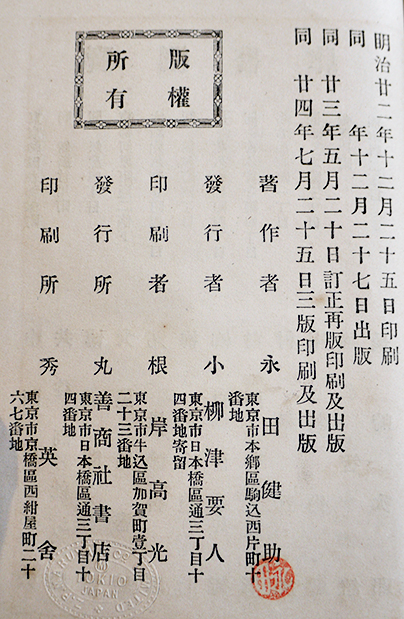 明治廿二年十二月二十五日印刷
同　年十二月二十七日出版
同　廿三年五月二十日訂正再版印刷及出版
同　廿四年七月二十五日三版印刷及出版
版權
所有
著作者　永田健助
東京市本鄉區駒込西片町十
番地
發行者　小柳津要人
東京市日本橋區通三丁目十
四番地寄留
印刷者　根岸高光
東京市牛込區加賀町壹丁目
二十三番地
發行所　丸善商社書店
東京市日本橋區通三丁目十
四番地
印刷所　秀英舍
東京市京橋區西紺屋町二十
六七番地
TOKIO
JAPAN